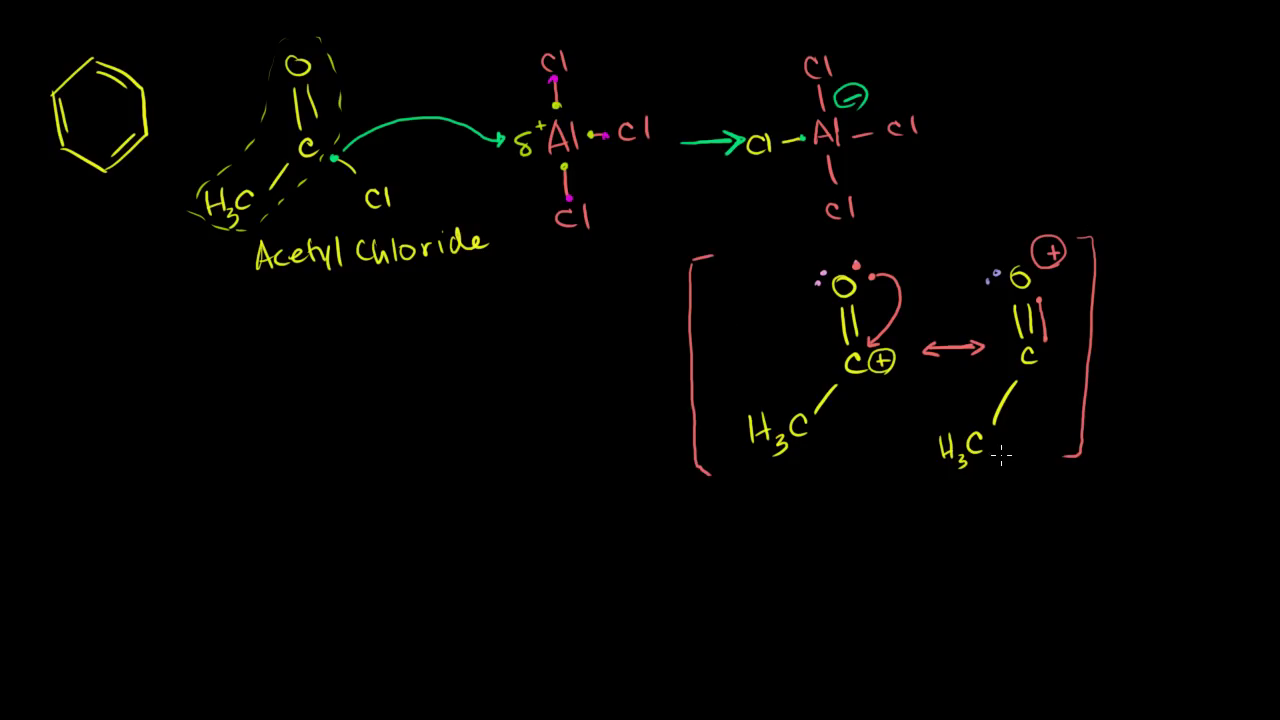 O
C
H₃C
Cl
Acetyl Chloride
Cl
δ⁺ Al Cl
Cl
Cl
⊖
Cl Al Cl
Cl
O
C ⊕
H₃C
O ⊕
C
H₃C